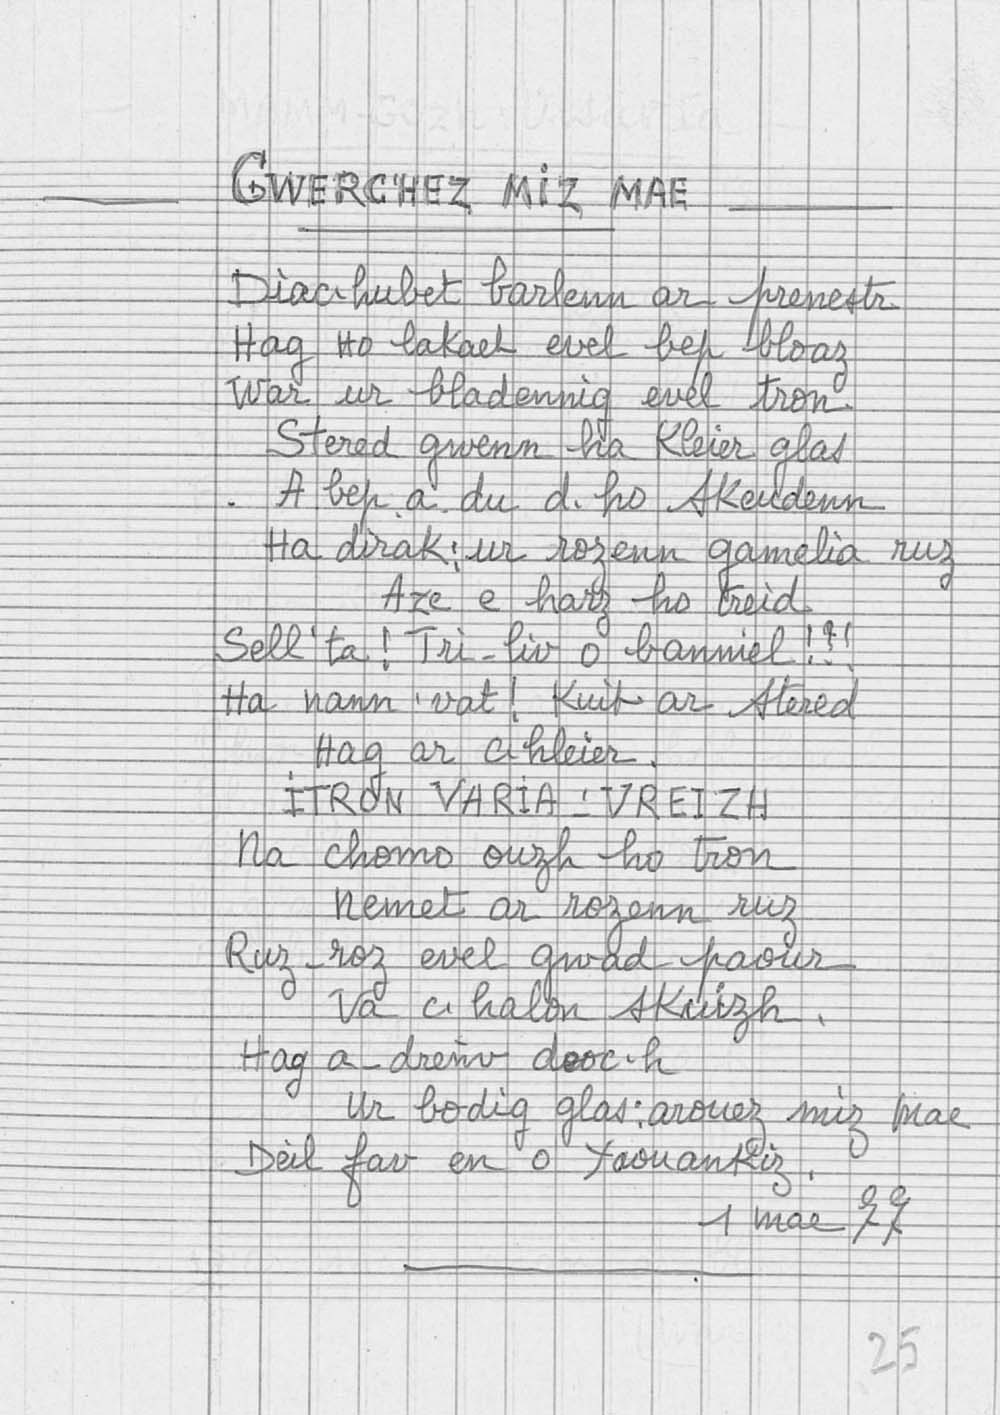 GWERC'HEZ MIZ MAE
Diac'hubet barlenn ar prenestr
Hag Ho lakaet evel bep bloaz
War ur bladennig evel tron.
Stered gwenn ha Kleier glas
A bep a du d. ho skeudenn
Ha dirak: ur rozenn gamelia ruz
Aze e harz ho treid.
Sell 'ta! Tri-liv o banniel!?!
Ha nann 'vat! Kuit ar stered
Hag ar c'hleier.
ITRON VARIA-VREIZH
Na chomo ouzh ho tron
Nemet ar rozenn ruz
Ruz-roz evel gwad paour
Va c'halon skuizh.
Hag a-dreñv deoc'h
Ur bodig glas: arouez miz Mae
Deil fav en o Yaouankiz.
1 mae 97
25